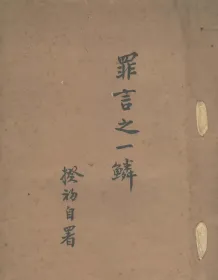 罪言之一鱗
揆初自署